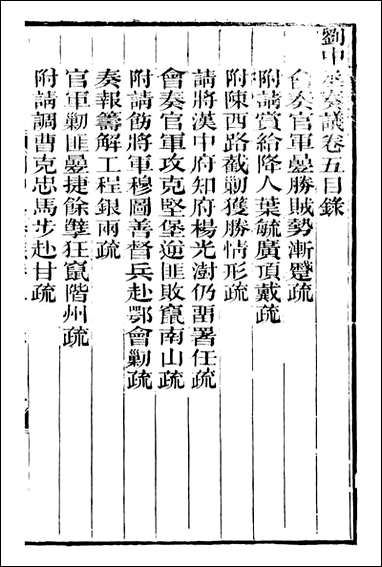 劉中丞奏議卷五目錄
會奏官軍屢勝賊勢漸蹙疏
附請賞給降人葉毓廣頂戴疏
附陳西路截勦獲勝情形疏
請將漢中府知府楊光澍仍留署任疏
會奏官軍攻克堅堡逆匪敗竄南山疏
附請飭將軍穆圖善督兵赴鄂會勦疏
奏報籌解工程銀兩疏
官軍勦匪屢捷餘孽狂竄階州疏
附請調曹克忠馬步赴甘疏